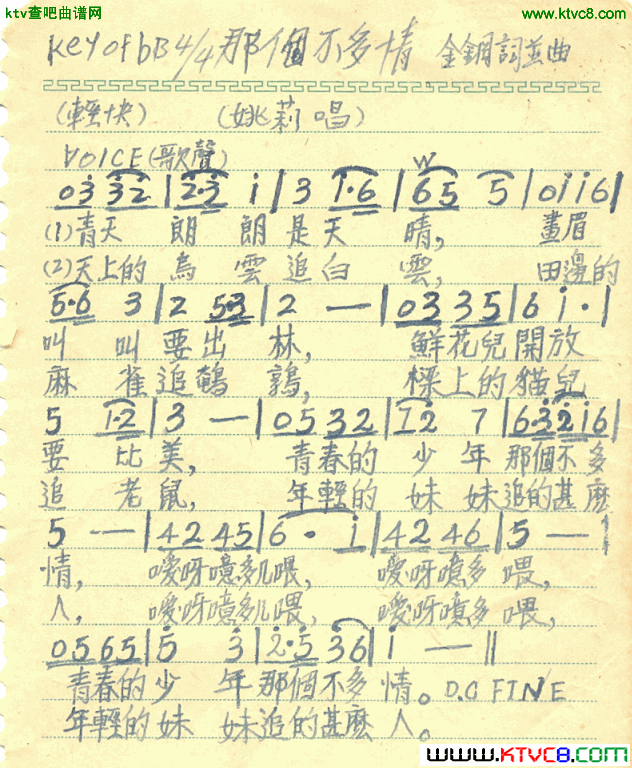 ktv查吧曲谱网
www.ktvc8.com
KEY OF bB 4/4 那個不多情 金鋼詞並曲
(輕快) (姚莉唱)
VOICE(歌聲)
03 32 | 2·3 i | 3 i·6 | 65 5 | 0i i6 |
(1)青天 朗 朗是天 晴, 畫眉
(2)天上的 烏 雲追白 雲, 田邊的
5·6 3 | 2 5·3 | 2 — | 03 35 | 6 i· |
叫 叫要出 林, 鮮花兒開放
麻 雀追鵪 鶉, 樑上的貓兒
5 i·2 | 3 — | 05 32 | i2 7 | 63 2i6 |
要 比美, 青春的 少 年 那個不多
追 老鼠, 年輕的 妹 妹追的甚麼
5 — | 42 45 | 6· i | 42 46 | 5 — |
情, 噯呀噫多儿喂, 噯呀噫多 喂,
人, 噯呀噫多儿喂, 噯呀噫多 喂,
05 65 | 5 3 | 2·5 36 | i — ‖
青春的少 年那個不多 情。D.C FINE
年輕的妹 妹追的甚麽 人。
www.KTVC8.com